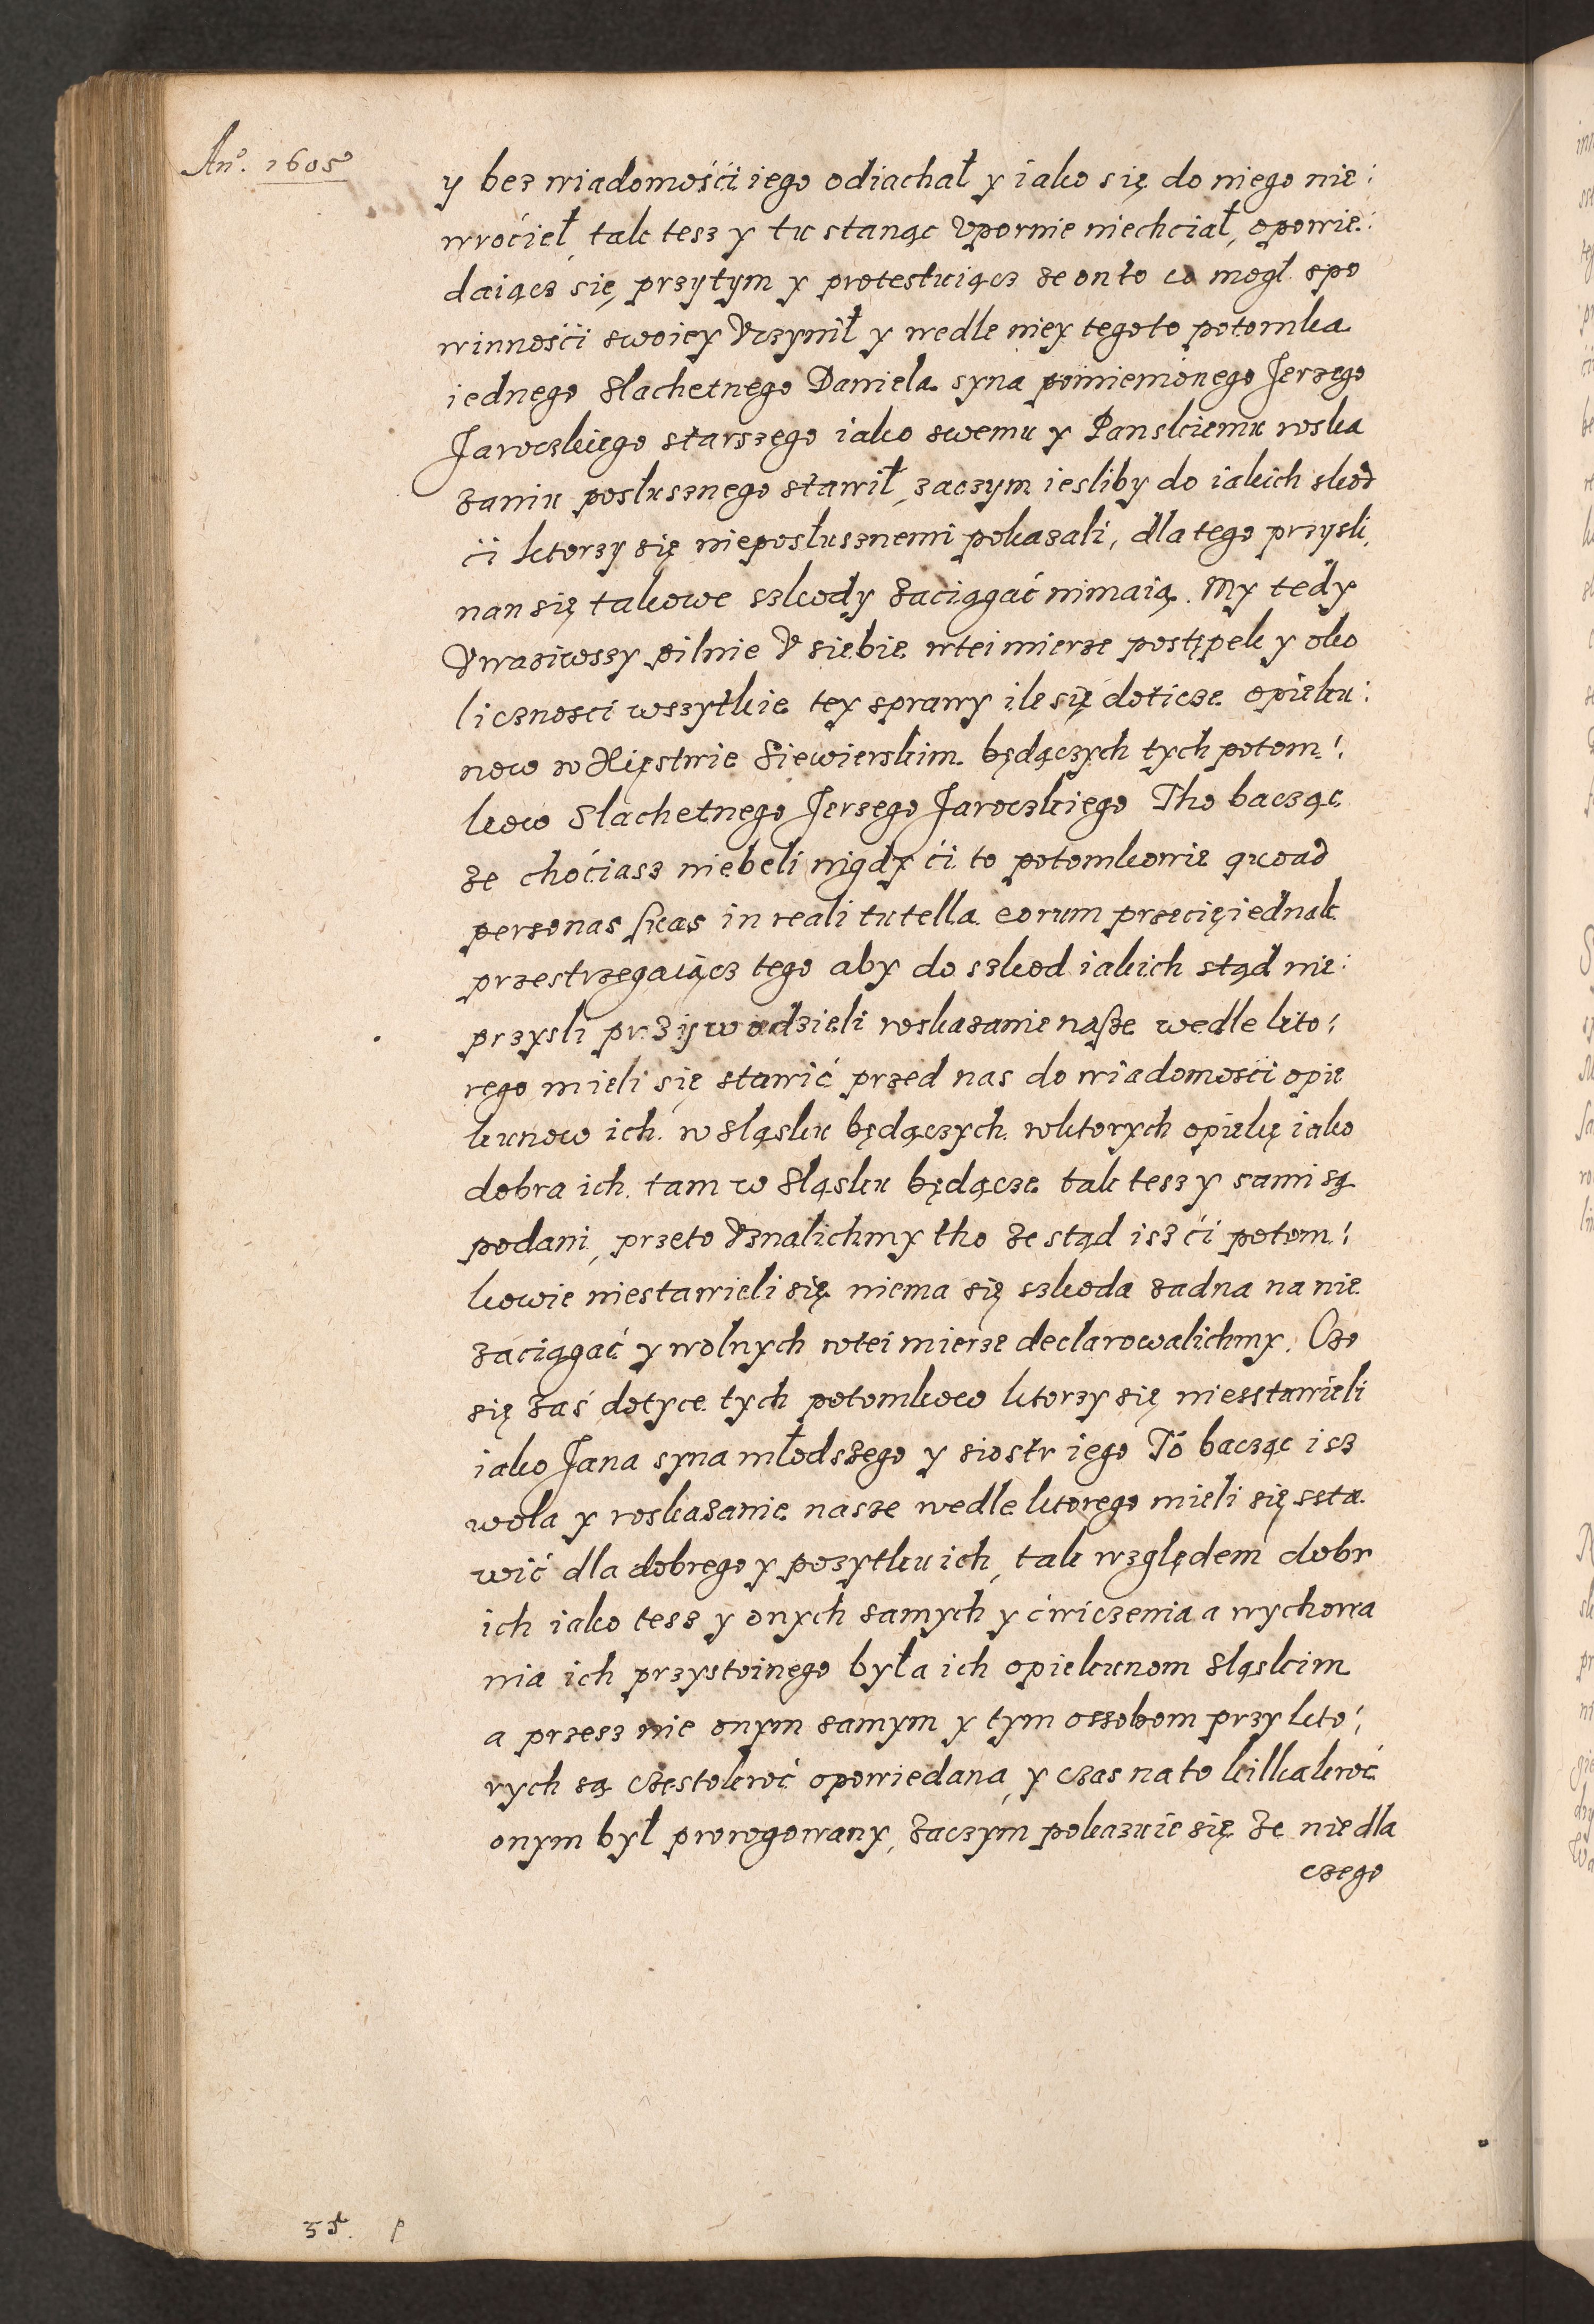 An͠o. 1605
y bez wiadomośći iego odiachał y iako się do niego nie:
wroćieł tak tesz y tu stanąc Vpornie niechciał, opowie:
daiącz się, przytym y protestuiącz ze on to co mogł spo
winnośći swoiey Vczynił y wedle niey tegoto potomka
iednego Slachetnego Daniela syna pomienionego Jerzego
Jaroczkiego starszego iako swemu y Panskiemu roska
zaniu posłusznego stawił, zaczym iesliby do iakich skod
ći ktorzy się nieposłusznemi pokazali, dla tego przysli,
nan się takowe szkody zaciągać nimaią. My tedy
Vwaziwszy pilnie V siebie wtei mierze postępek y oko
licznosci wszytkie tey sprawy ile się doticze opieku:
now w Xięstwie Siewierskim będączych tych potom:
kow Slachetnego Jerzego Jaroczkiego Tho bacząc
ze choćiasz niebeli nigdy ći to potomkowie quoad
personas suas in reali tutella eorum przecię iednak
przestrzegaiącz tego aby do szkod iakich stąd nie:
przysli przywodzieli roskazanie nasze wedle kto:
rego mieli się stawić przed nas do wiadomośći opie
kunow ich w Sląsku będączych wktorych opiekę iako
dobra ich tam w Sląsku będącze tak tesz y sami są
podani, przeto Vznalichmy tho ze stąd isz ći potom:
kowie niestawieli się niema się szkoda zadna na nie
zaciągać y wolnych wtei mierze declarowalichmy. Czo
się zaś dotyce tych potomkow ktorzy się niesstawieli
iako Jana syna młodszego y siostr iego To bacząc isz
wola y roskazanie nasze wedle ktorego mieli się ssta
wić dla dobrego y pozytku ich, tak względem dobr
ich iako tesz y onych samych y ćwiczenia a wychowa
nia ich przystoinego była ich opiekunom sląskim
a przesz nie onym samym y tym ossobom przy kto:
rych są częstokroć opowiedana, y czas na to kilkakroć
onym był prorogowany, zaczym pokazuie się ze nie dla
czego